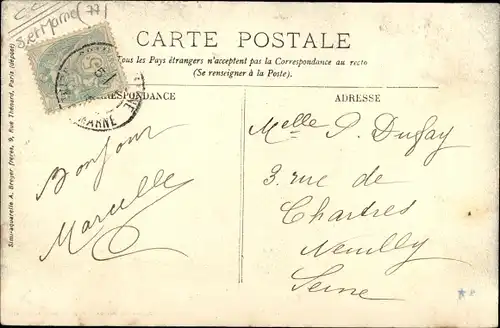 S. et Marne (77)
CARTE POSTALE
Tous les Pays étrangers n'acceptent pas la Correspondance au recto
(Se renseigner à la Poste).
CORRESPONDANCE
ADRESSE
MARNE
Simili-aquarelle A. Breger frères, 9, Rue Thénard, Paris (déposé)
Bonjour
Marcelle
Melle P. Dufay
3. rue de
Chartres
Neuilly
Seine